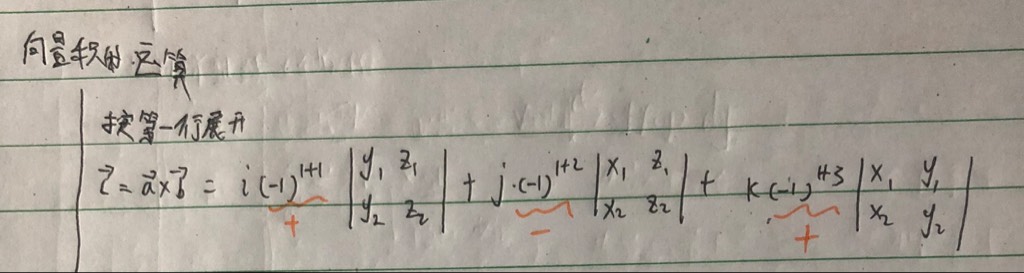 向量积的运算
按第一行展开
c⃗ = a⃗×b⃗ = i(-1)^{1+1} |y₁ z₁; y₂ z₂| + j·(-1)^{1+2} |x₁ z₁; x₂ z₂| + k(-1)^{1+3} |x₁ y₁; x₂ y₂|
+ − +